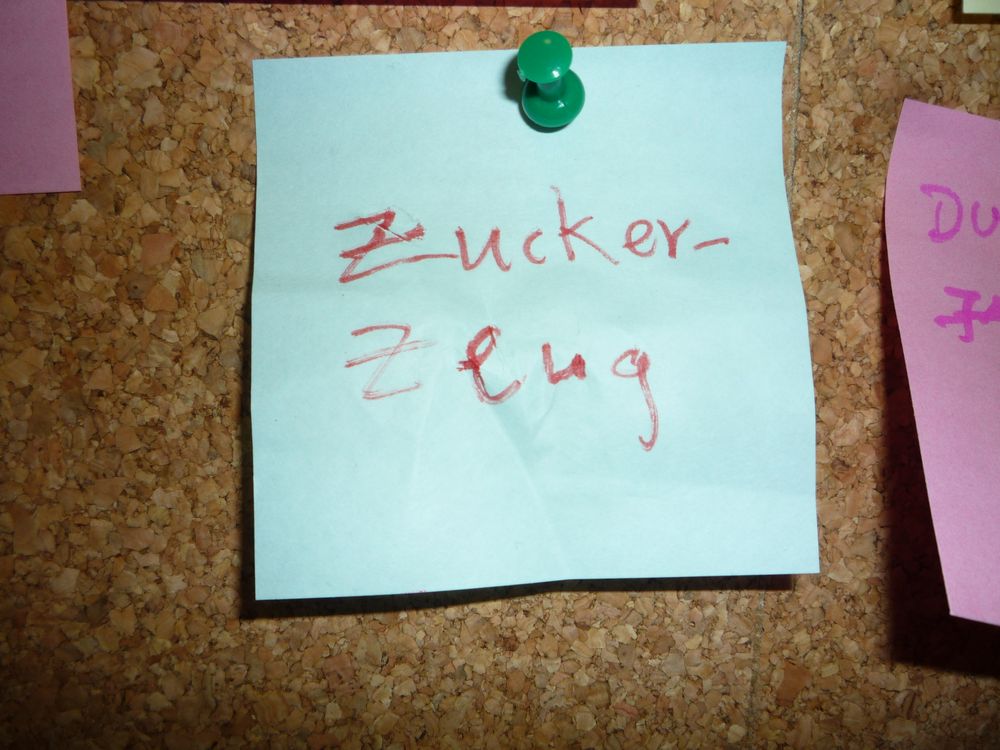 Zucker-
Zeug
Du